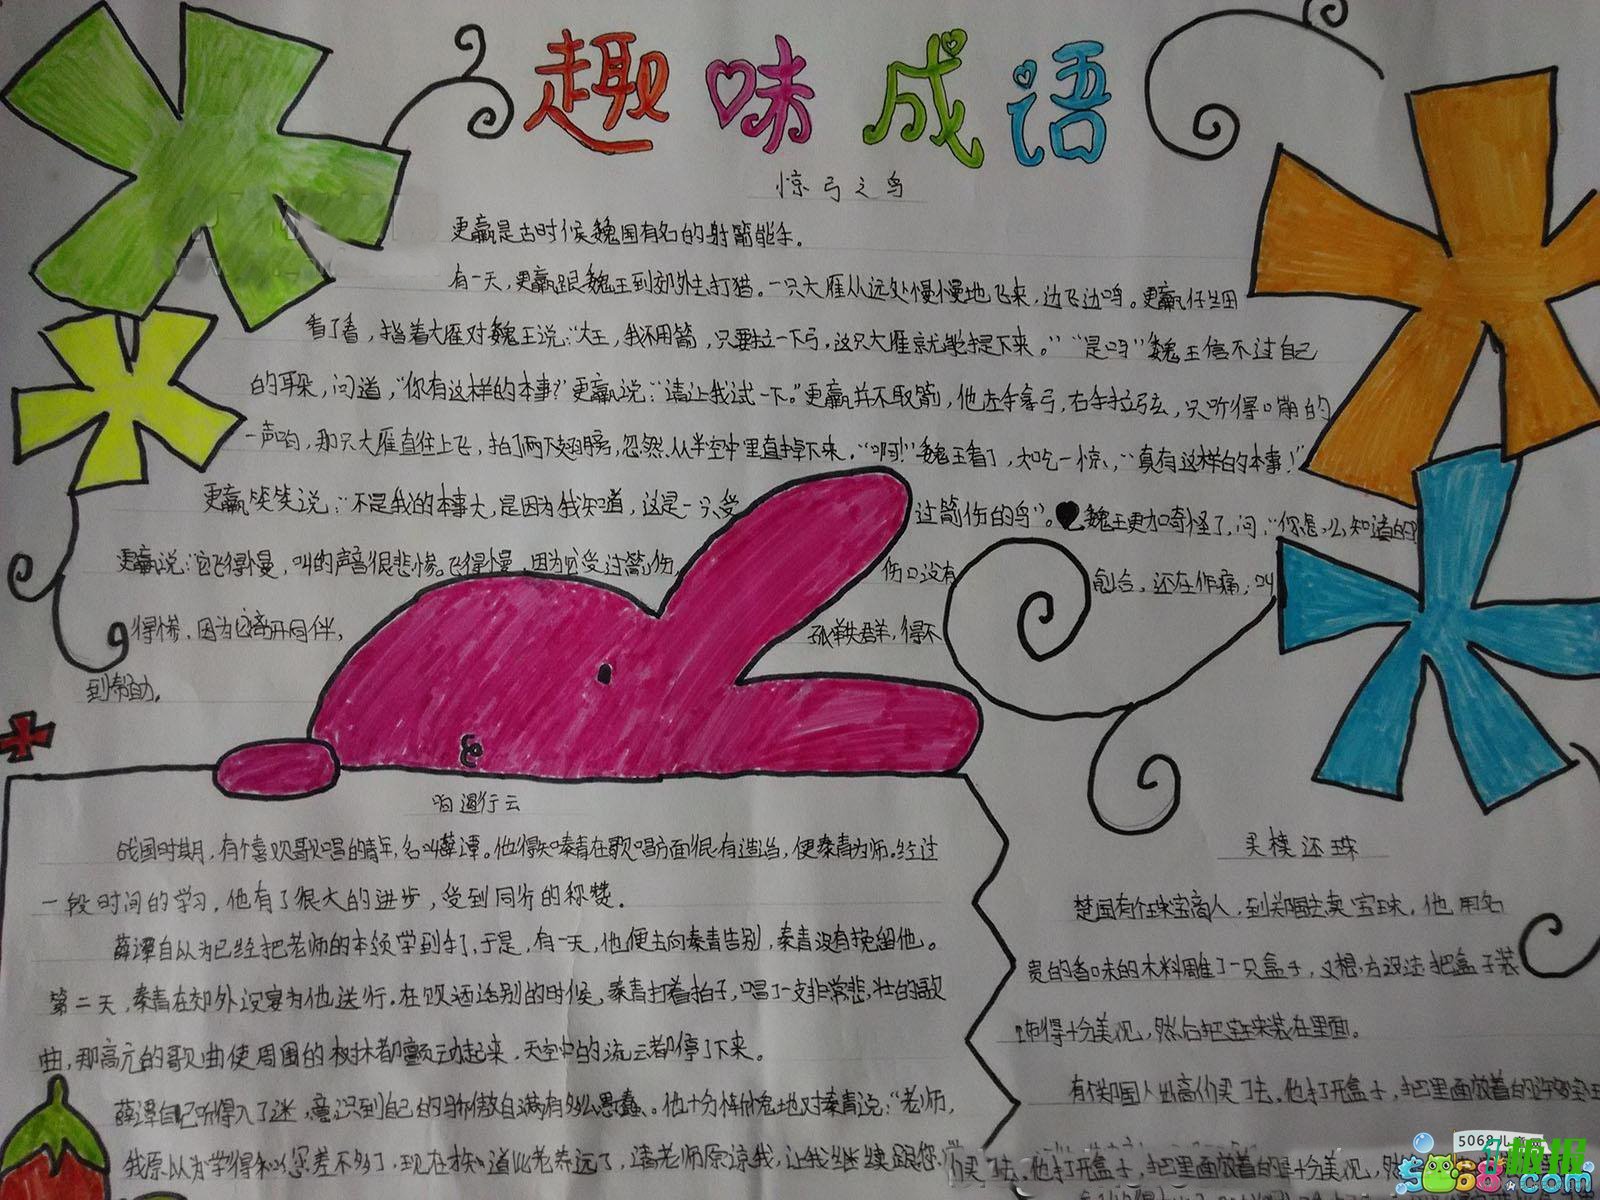 趣味成语
惊弓之鸟
更羸是古时候魏国有名的射箭能手。
有一天,更羸跟魏王到郊外去打猎。一只大雁从远处慢慢地飞来,边飞边鸣。更羸仔细
看了看,指着大雁对魏王说:“大王,我不用箭,只要拉一下弓,这只大雁就能掉下来。”“是吗”魏王信不过自己
的耳朵,问道,“你有这样的本事?”更羸说:“请让我试一下。”更羸并不取箭,他左手拿弓,右手拉弦,只听得嘣的
一声响,那只大雁直往上飞,拍了两下翅膀,忽然从半空中里直掉下来。“啊!”魏王看了,大吃一惊,“真有这样的本事!”
更羸笑笑说:“不是我的本事大,是因为我知道,这是一只受过箭伤的鸟”。魏王更加奇怪了,问,“你怎么知道的?”
更羸说:它飞得慢,叫的声音很悲惨。飞得慢,因为它受过箭伤,伤口没有愈合,还在作痛;叫
得惨,因为它离开同伴,孤单失群,得不
到帮助。
响遏行云
战国时期,有个喜欢歌唱的青年,名叫薛谭。他得知秦青在歌唱方面很有造诣,便秦青为师。经过
一段时间的学习,他有了很大的进步,受到同行的称赞。
薛谭自以为已经把老师的本领学到手了,于是,有一天,他便去向秦青告别,秦青没有挽留他。
第二天,秦青在郊外设宴为他送行。在饮酒话别的时候,秦青打着拍子,唱了一支非常悲壮的歌
曲,那高亢的歌曲使周围的树木都颤动起来,天空中的流云都停了下来。
薛谭自己听得入了迷,意识到自己的骄傲自满有多么愚蠢。他十分惭愧地对秦青说:“老师,
我原以为学得和您差不多了,现在才知道此老差远了,请老师原谅我,让我继续跟您
买椟还珠
楚国有个珠宝商人,到郑国去卖宝珠,他用名
贵的香味的木料雕了一只盒子,又想方设法把盒子装
饰得十分美观,然后把宝珠装在里面。
有个郑国人出高价买了去。他打开盒子,把里面放着的许多宝珠
5068儿童网
板报
5068.com